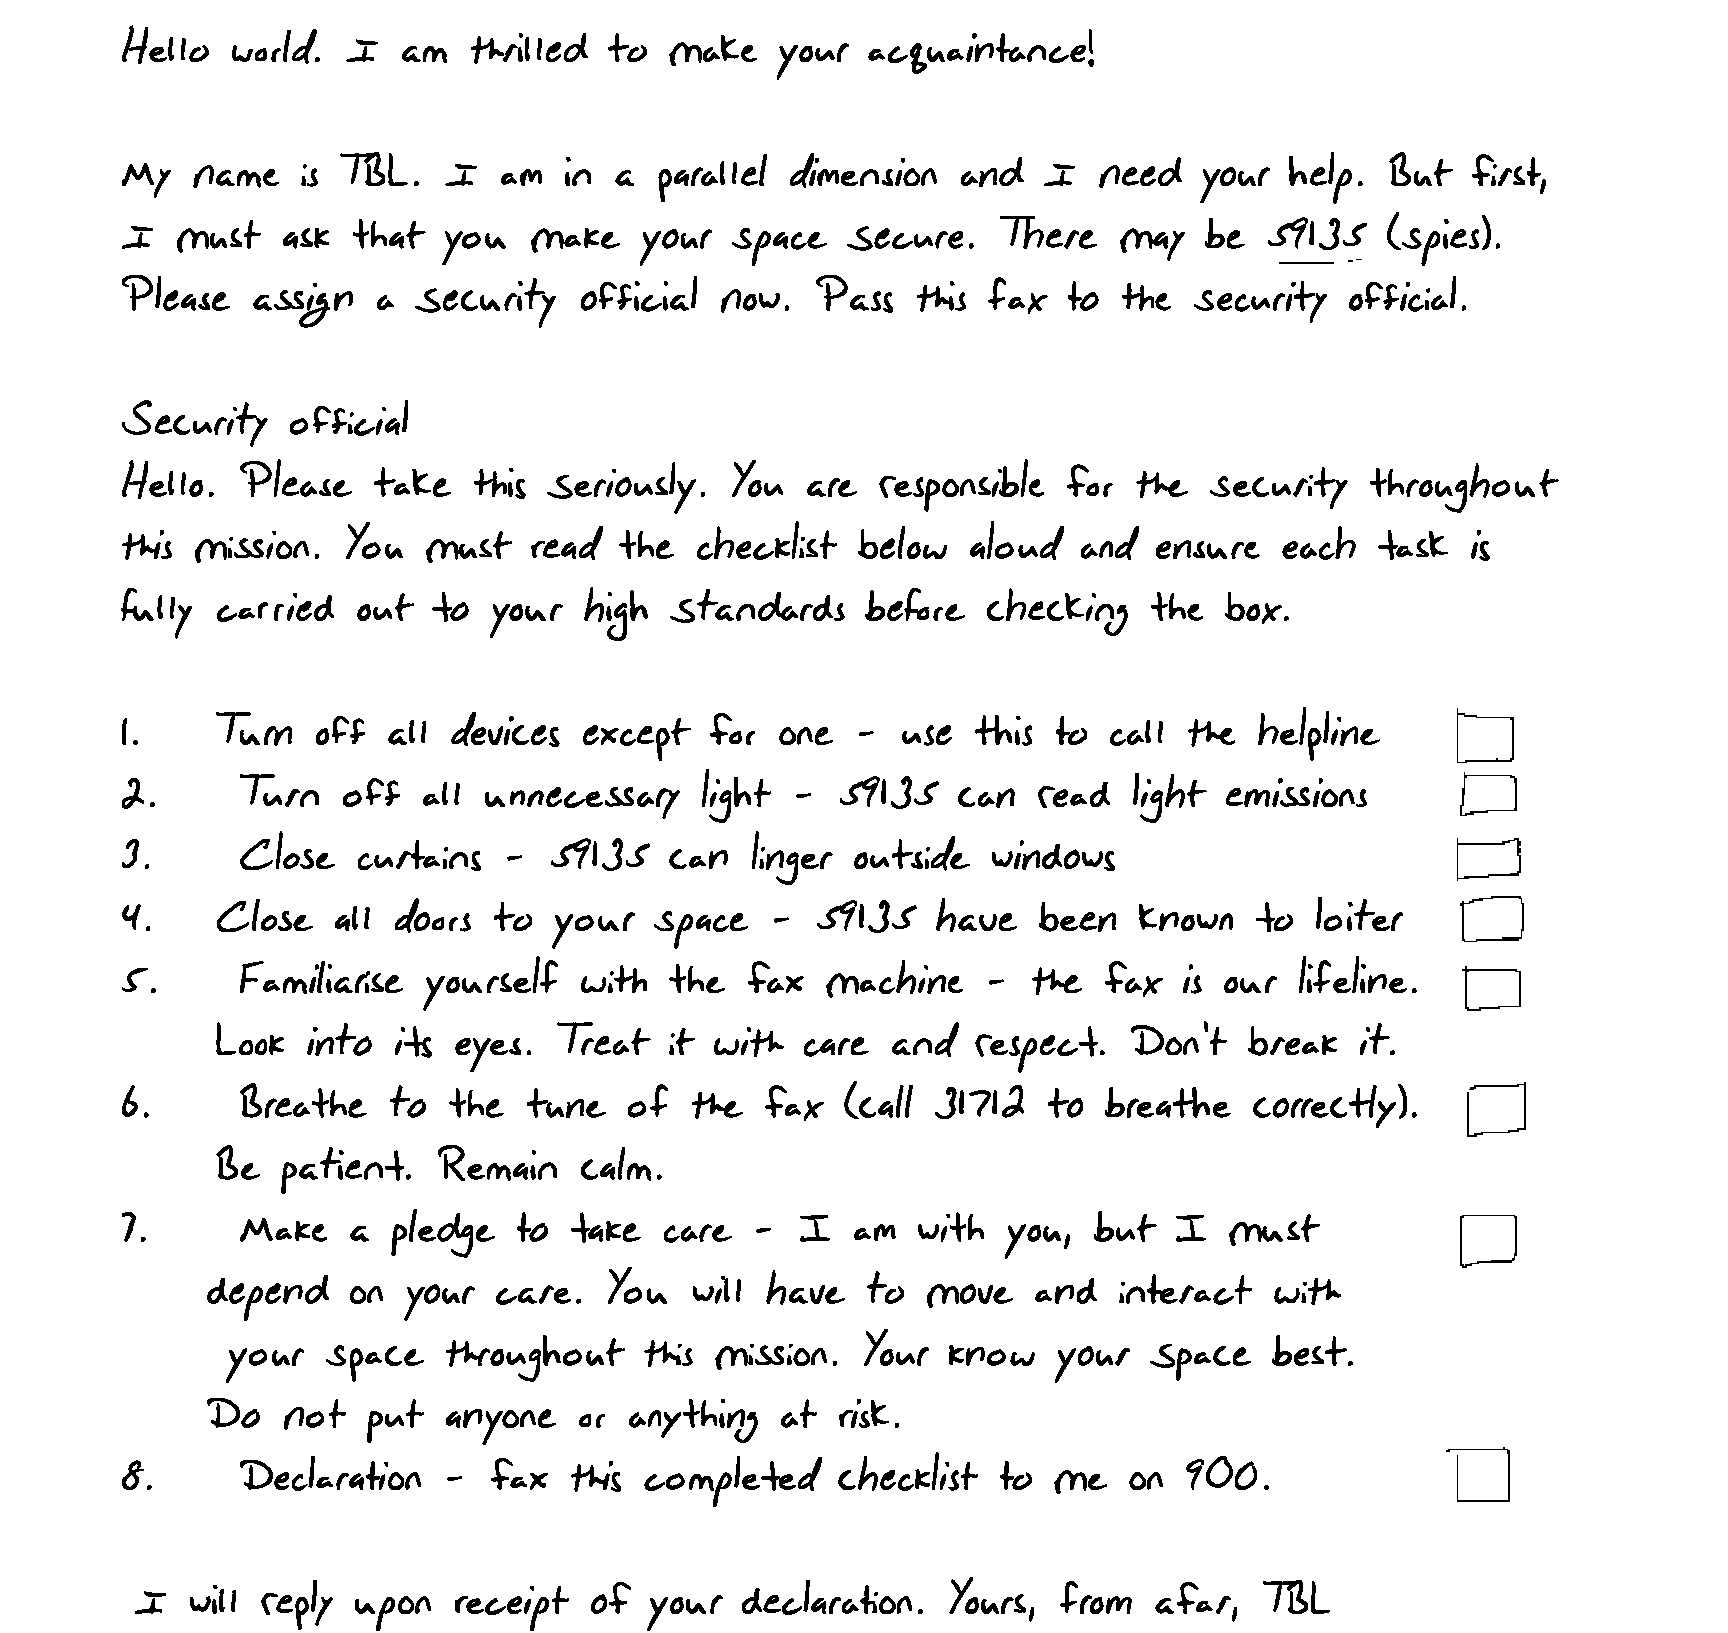 Hello world. I am thrilled to make your acquaintance!
My name is TBL. I am in a parallel dimension and I need your help. But first,
I must ask that you make your space secure. There may be 59135 (spies).
Please assign a security official now. Pass this fax to the security official.
Security official
Hello. Please take this seriously. You are responsible for the security throughout
this mission. You must read the checklist below aloud and ensure each task is
fully carried out to your high standards before checking the box.
1. Turn off all devices except for one - use this to call the helpline
2. Turn off all unnecessary light - 59135 can read light emissions
3. Close curtains - 59135 can linger outside windows
4. Close all doors to your space - 59135 have been known to loiter
5. Familiarise yourself with the fax machine - the fax is our lifeline.
Look into its eyes. Treat it with care and respect. Don't break it.
6. Breathe to the tune of the fax (call 31712 to breathe correctly).
Be patient. Remain calm.
7. Make a pledge to take care - I am with you, but I must
depend on your care. You will have to move and interact with
your space throughout this mission. Your know your space best.
Do not put anyone or anything at risk.
8. Declaration - fax this completed checklist to me on 900.
I will reply upon receipt of your declaration. Yours, from afar, TBL